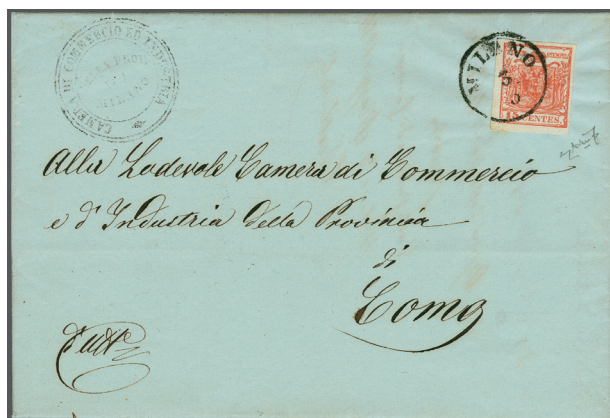 CAMERA DI COMMERCIO ED INDUSTRIA
DELLA PROV.
DI
MILANO
MILANO
15 CENTES
Alla Lodevole Camera di Commercio
e d'Industria della Provincia
di
Como